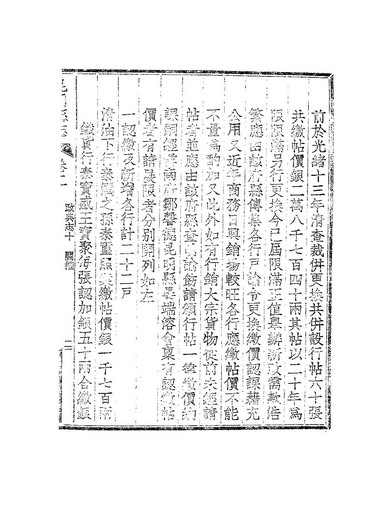 前於光緒十三年清查裁併更換共併設行帖六十張
共繳帖價銀二萬八千七百四十兩其帖以二十年為
限限滿另行更換今已屆限滿正值舉辦新政需款浩
繁應由該府縣傳集各行戶諭令更換繳價認課藉充
公用又近年商務日興銷場較旺各行應繳帖價不能
不量為酌加又此外如有行銷大宗貨物從前未經請
帖者並應由該府縣查明論飭請領行帖一律繳價納
課嗣經雲南府鄒馨德昆明縣裴端溶會稟有認繳帖
價者有請展限者分別開列如左
一認繳及新增各行計二十二戶
湊油下行秦興之孫秦璽熙舊繳帖價銀一千七百兩
鐵貨行秦寶盛王寶聚海張認加銀五十兩合繳銀